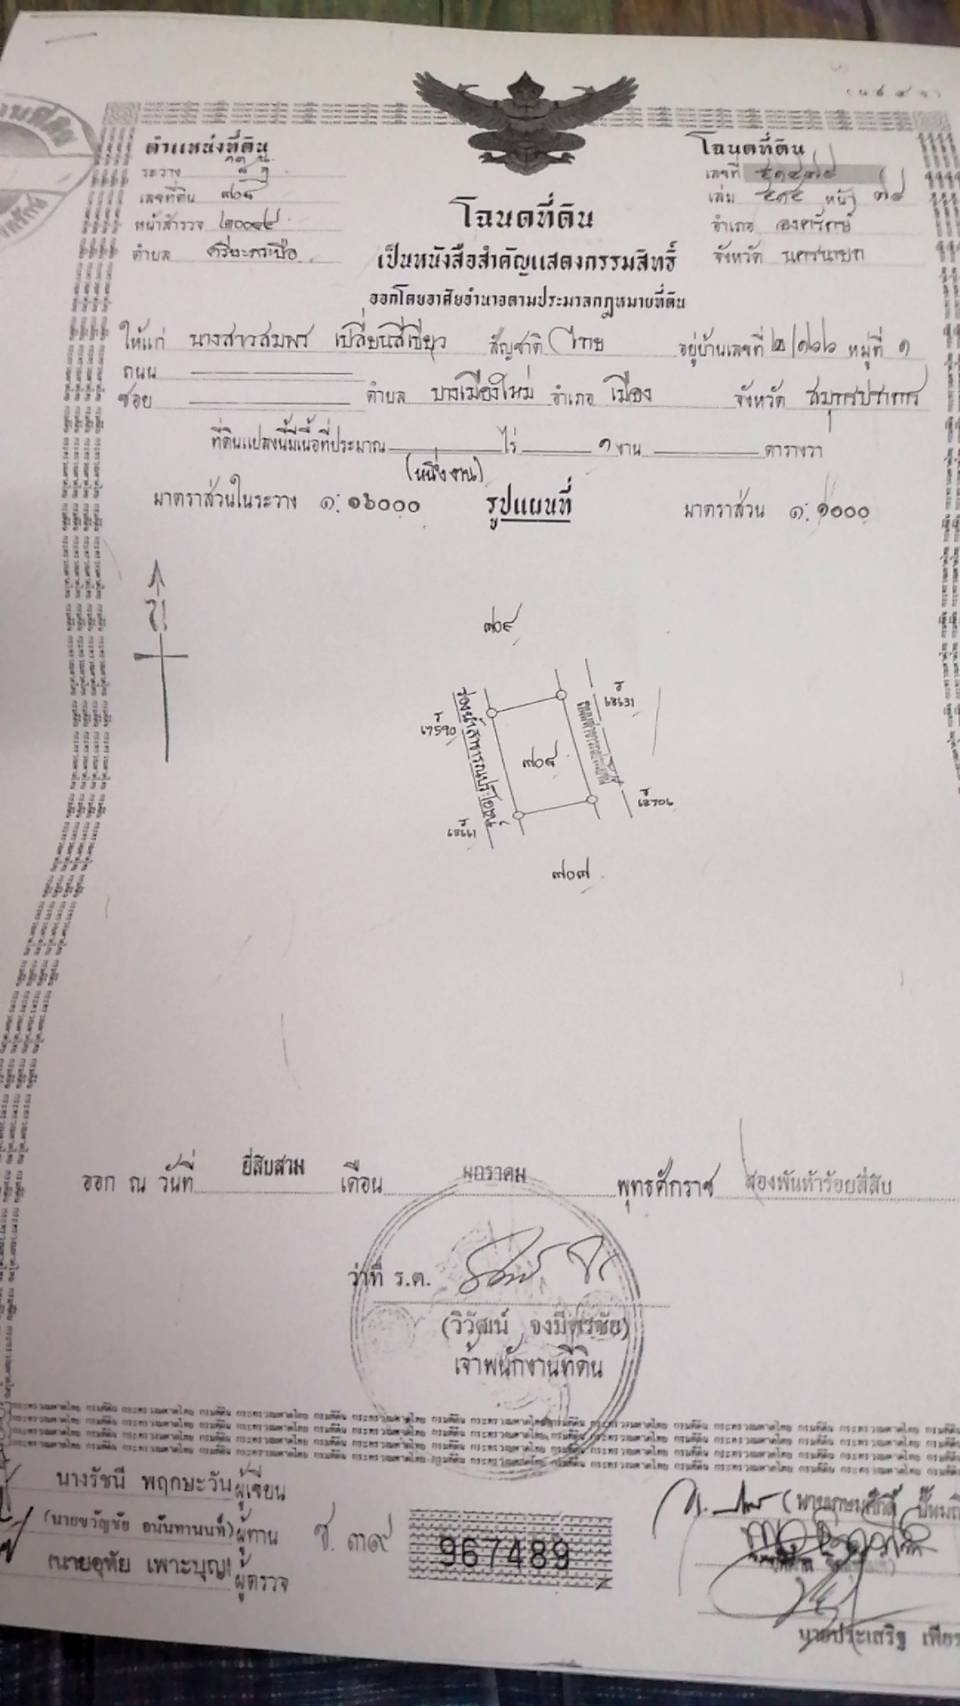 (น.ส. ๔ จ.)
ตำแหน่งที่ดิน
ระวาง
เลขที่ดิน ๗๐๘
หน้าสำรวจ
ตำบล ศรีษะกระบือ
โฉนดที่ดิน
เลขที่
เล่ม หน้า ๗๘
อำเภอ องครักษ์
จังหวัด นครนายก
โฉนดที่ดิน
เป็นหนังสือสำคัญแสดงกรรมสิทธิ์
ออกโดยอาศัยอำนาจตามประมวลกฎหมายที่ดิน
ให้แก่ นางสาวสมพร เปลี่ยนสีเขียว สัญชาติ ไทย อยู่บ้านเลขที่ ๒/๑๖๖ หมู่ที่ ๑
ถนน
ซอย ตำบล บางเมืองใหม่ อำเภอ เมือง จังหวัด สมุทรปราการ
ที่ดินแปลงนี้มีเนื้อที่ประมาณ ไร่ ๑ งาน ตารางวา
(หนึ่งงาน)
มาตราส่วนในระวาง ๑:๑๖๐๐๐ รูปแผนที่ มาตราส่วน ๑:๑๐๐๐
น
๗๐๙
๗๐๘
ร่องน้ำสาธารณประโยชน์
๗๐๗
ออก ณ วันที่ ยี่สิบสาม เดือน มกราคม พุทธศักราช สองพันห้าร้อยสี่สิบ
ว่าที่ ร.ต.
(วิวัฒน์ จงมีตรชัย)
เจ้าพนักงานที่ดิน
นางรัชนี พฤกษะวัน ผู้เขียน
(นายขวัญชัย อนันทานนท์) ผู้ทาน
นายอุทัย เพาะบุญ ผู้ตรวจ
ช. ๓๙
967489
นายประเสริฐ เพียร